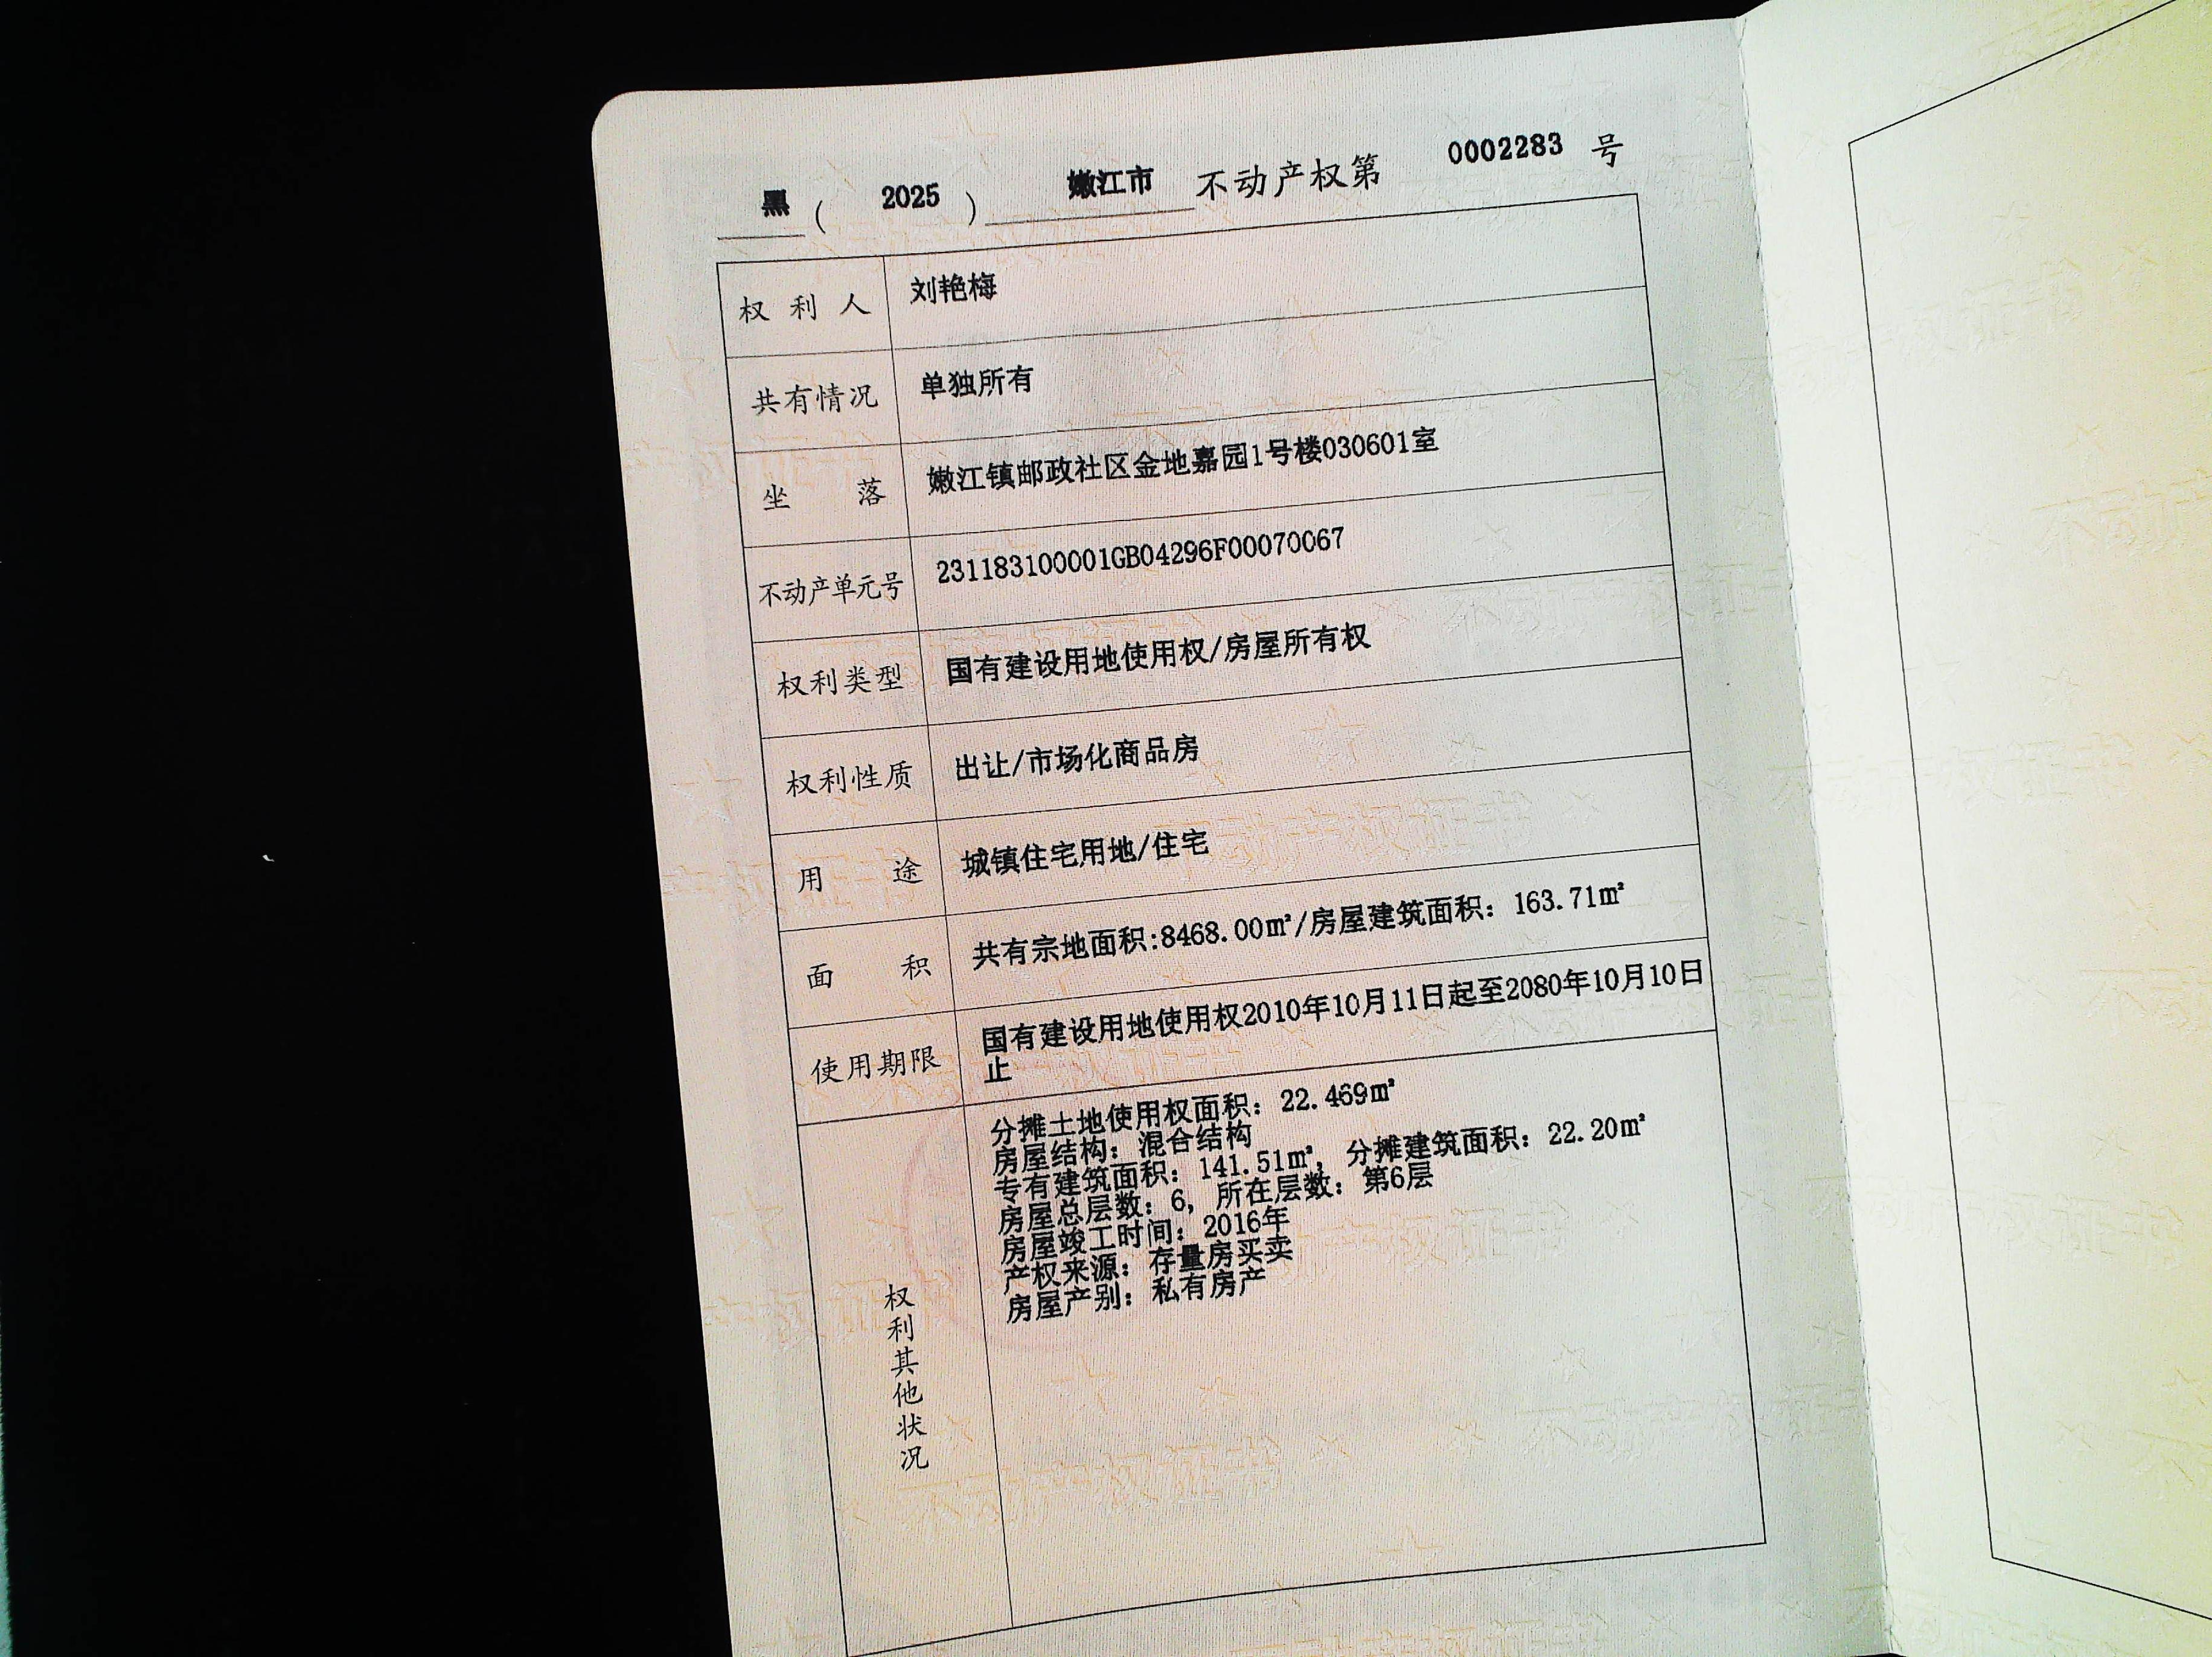 黑 ( 2025 ) 嫩江市 不动产权第 0002283 号
权利人 刘艳梅
共有情况 单独所有
坐落 嫩江镇邮政社区金地嘉园1号楼030601室
不动产单元号 231183100001GB04296F00070067
权利类型 国有建设用地使用权/房屋所有权
权利性质 出让/市场化商品房
用途 城镇住宅用地/住宅
面积 共有宗地面积:8468.00㎡/房屋建筑面积：163.71㎡
使用期限 国有建设用地使用权2010年10月11日起至2080年10月10日
止
权利其他状况
分摊土地使用权面积：22.469㎡
房屋结构：混合结构
专有建筑面积：141.51㎡，分摊建筑面积：22.20㎡
房屋总层数：6，所在层数：第6层
房屋竣工时间：2016年
产权来源：存量房买卖
房屋产别：私有房产